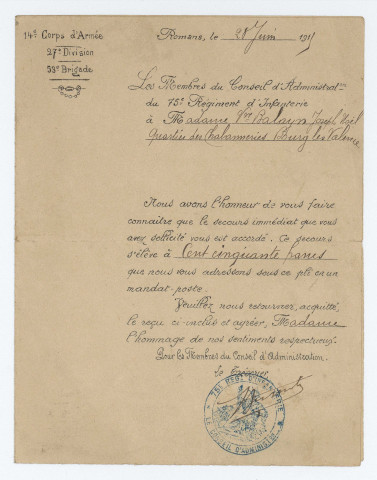 14e Corps d'Armée
27e Division
53e Brigade
Romans, le 28 Juin 1915
Les Membres du Conseil d'Administratn
du 75e Régiment d'Infanterie
à Madame Vve Balayn Joseph
Quartier des Bourg les Valence
Nous avons l'honneur de vous faire
connaître que le secours immédiat que vous
avez sollicité vous est accordé. Ce secours
s'élève à Cent cinquante francs
que nous vous adressons sous ce pli en un
mandat-poste.
Veuillez nous retourner, acquitté,
le reçu ci-inclus et agréer, Madame
l'hommage de nos sentiments respectueux.
Pour les Membres du Conseil d'Administration.
Le Trésorier,
75e REGt D'INFANTERIE
LE CONSEIL D'ADMINISTon